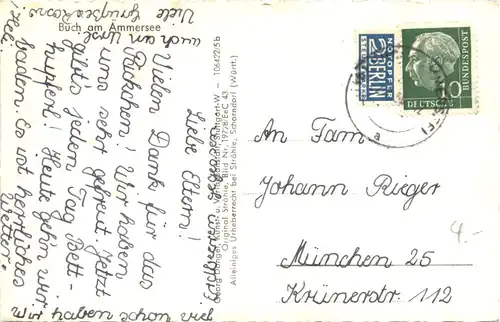 Buch am Ammersee
Liebe Eltern!
Vielen Dank für das
Päckchen! Wir haben
uns sehr gefreut. Jetzt
gibt's jeden Tag Bett-
hupferl! Heute gehn wir
baden. Es ist herrliches
Wetter.
Wir haben schon viel
See.
auch an Ursl
Viele
Grüße Hans
106422/5b
Original Strähle, Bild Nr. 19778/EeC 43
Alleiniges Urheberrecht bei Strähle, Schorndorf (Württ.)
NOTOPFER
2 BERLIN
STEUERMARKE
10
DEUTSCHE
BUNDESPOST
An Fam.
Johann Rieger
München 25
Krünerstr. 112
4.-